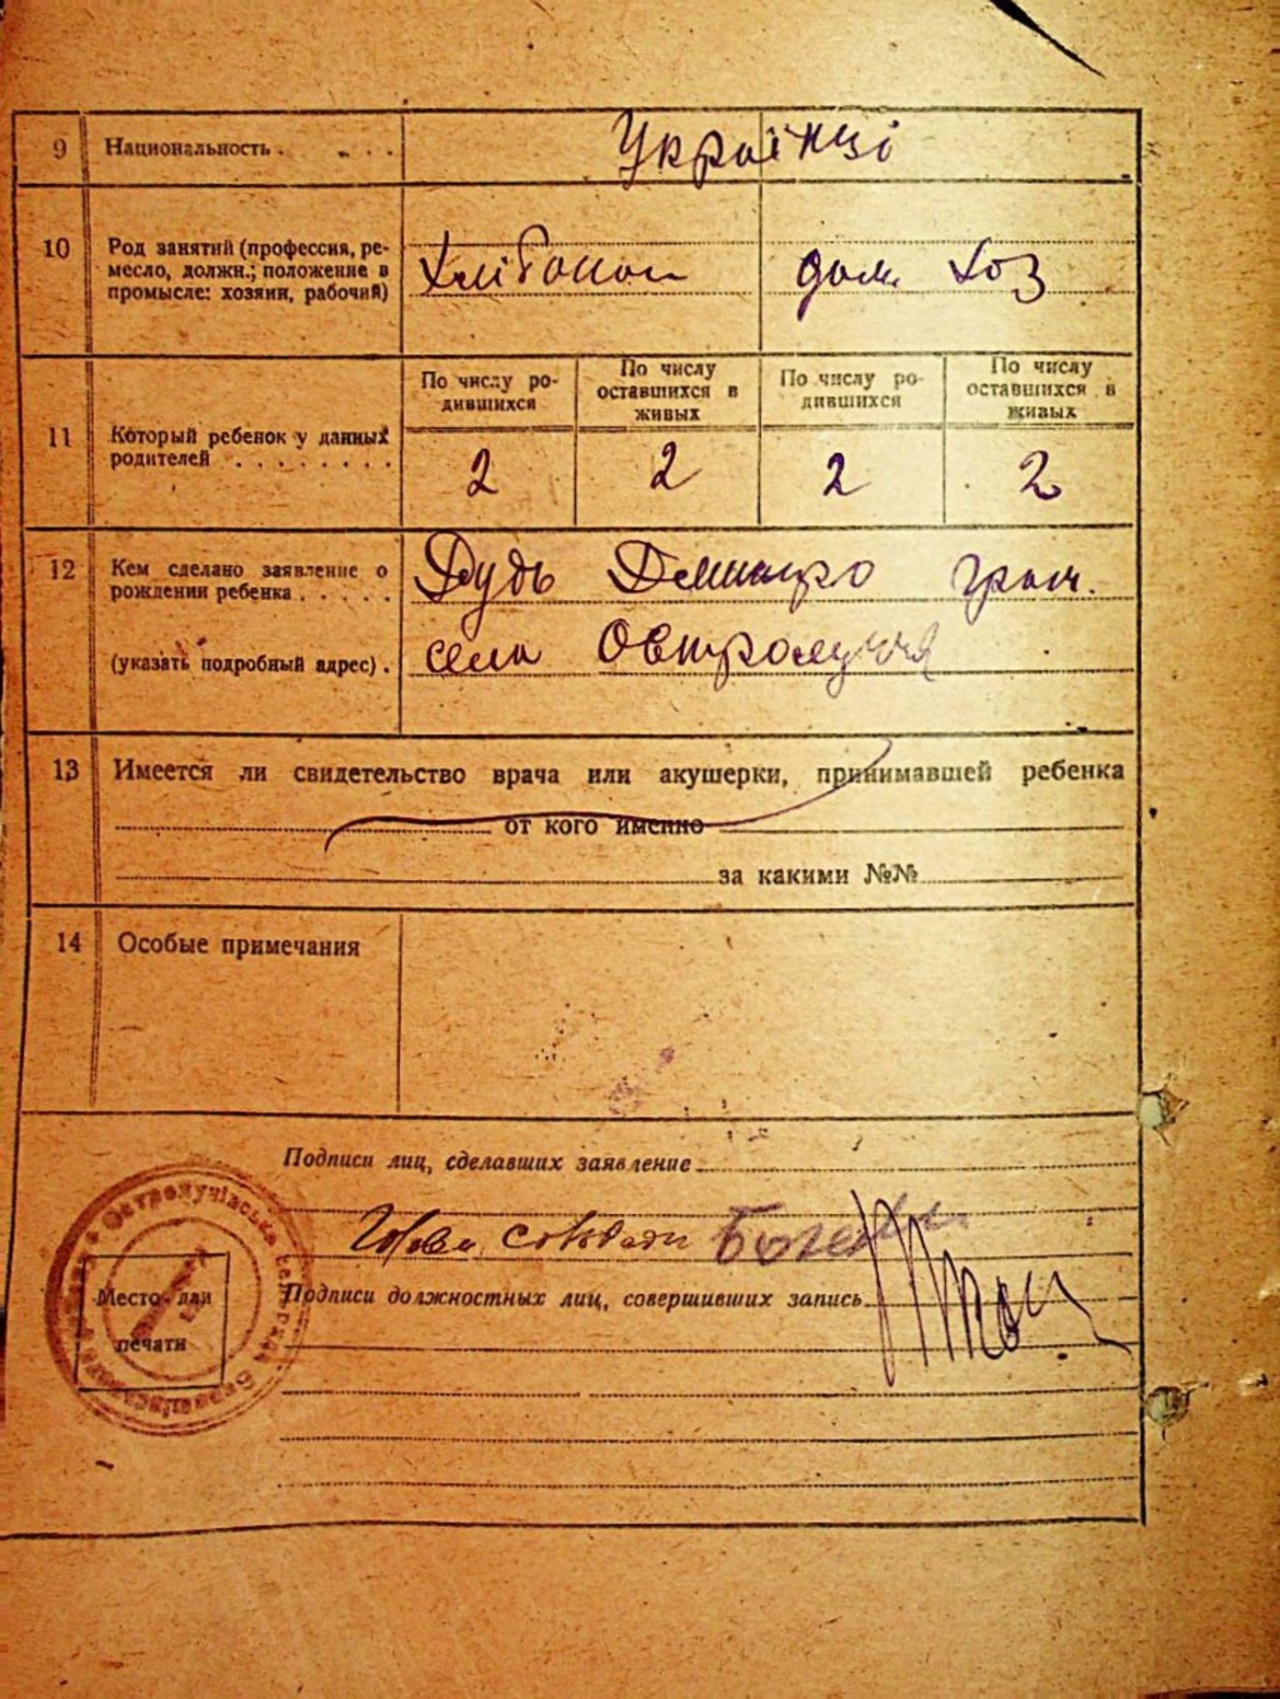 9 Национальность . . . . Українці
10 Род занятий (профессия, ре-
месло, должн.; положение в
промысле: хозяин, рабочий)
Хлібоноп дом. хоз
11 Который ребенок у данных
родителей . . . . . . . .
По числу ро-
дившихся
По числу
оставшихся в
живых
По числу ро-
дившихся
По числу
оставшихся в
живых
2 2 2 2
12 Кем сделано заявление о
рождении ребенка . . . . .
(указать подробный адрес) .
Дудь Дмитро гром.
села Овтролуччя
13 Имеется ли свидетельство врача или акушерки, принимавшей ребенка
от кого именно
за какими №№
14 Особые примечания
Подписи лиц, сделавших заявление
Голова сільради
Подписи должностных лиц, совершивших запись
Место для
печати
Остролучівська